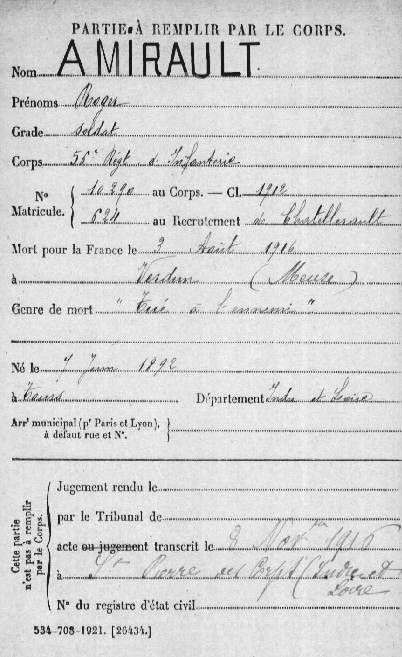 PARTIE À REMPLIR PAR LE CORPS.
Nom AMIRAULT
Prénoms Roger
Grade soldat
Corps 56e Régt d'Infanterie
No Matricule. 10.390 au Corps. — Cl. 1912
624 au Recrutement de Chatellerault
Mort pour la France le 3 Août 1916
à Verdun (Meuse)
Genre de mort "Tué à l'ennemi"
Né le 7 Juin 1892
à Tours Département Indre et Loire
Arrt municipal (pr Paris et Lyon), à défaut rue et No.
Cette partie n'est pas à remplir par le Corps.
Jugement rendu le
par le Tribunal de
acte ou jugement transcrit le 2 Novbre 1916
à St Pierre des Corps (Indre et Loire
No du registre d'état civil
534-708-1921. [26434.]